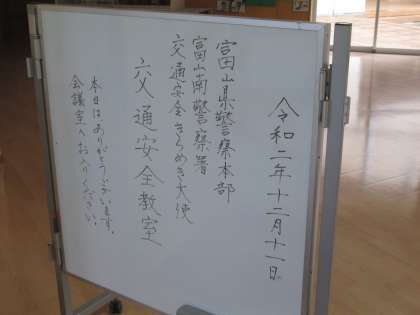 令和二年十二月十一日
富山県警察本部
富山南警察署
交通安全きらめき大使
交通安全教室
本日はありがとうございます。
会議室へお入りください。